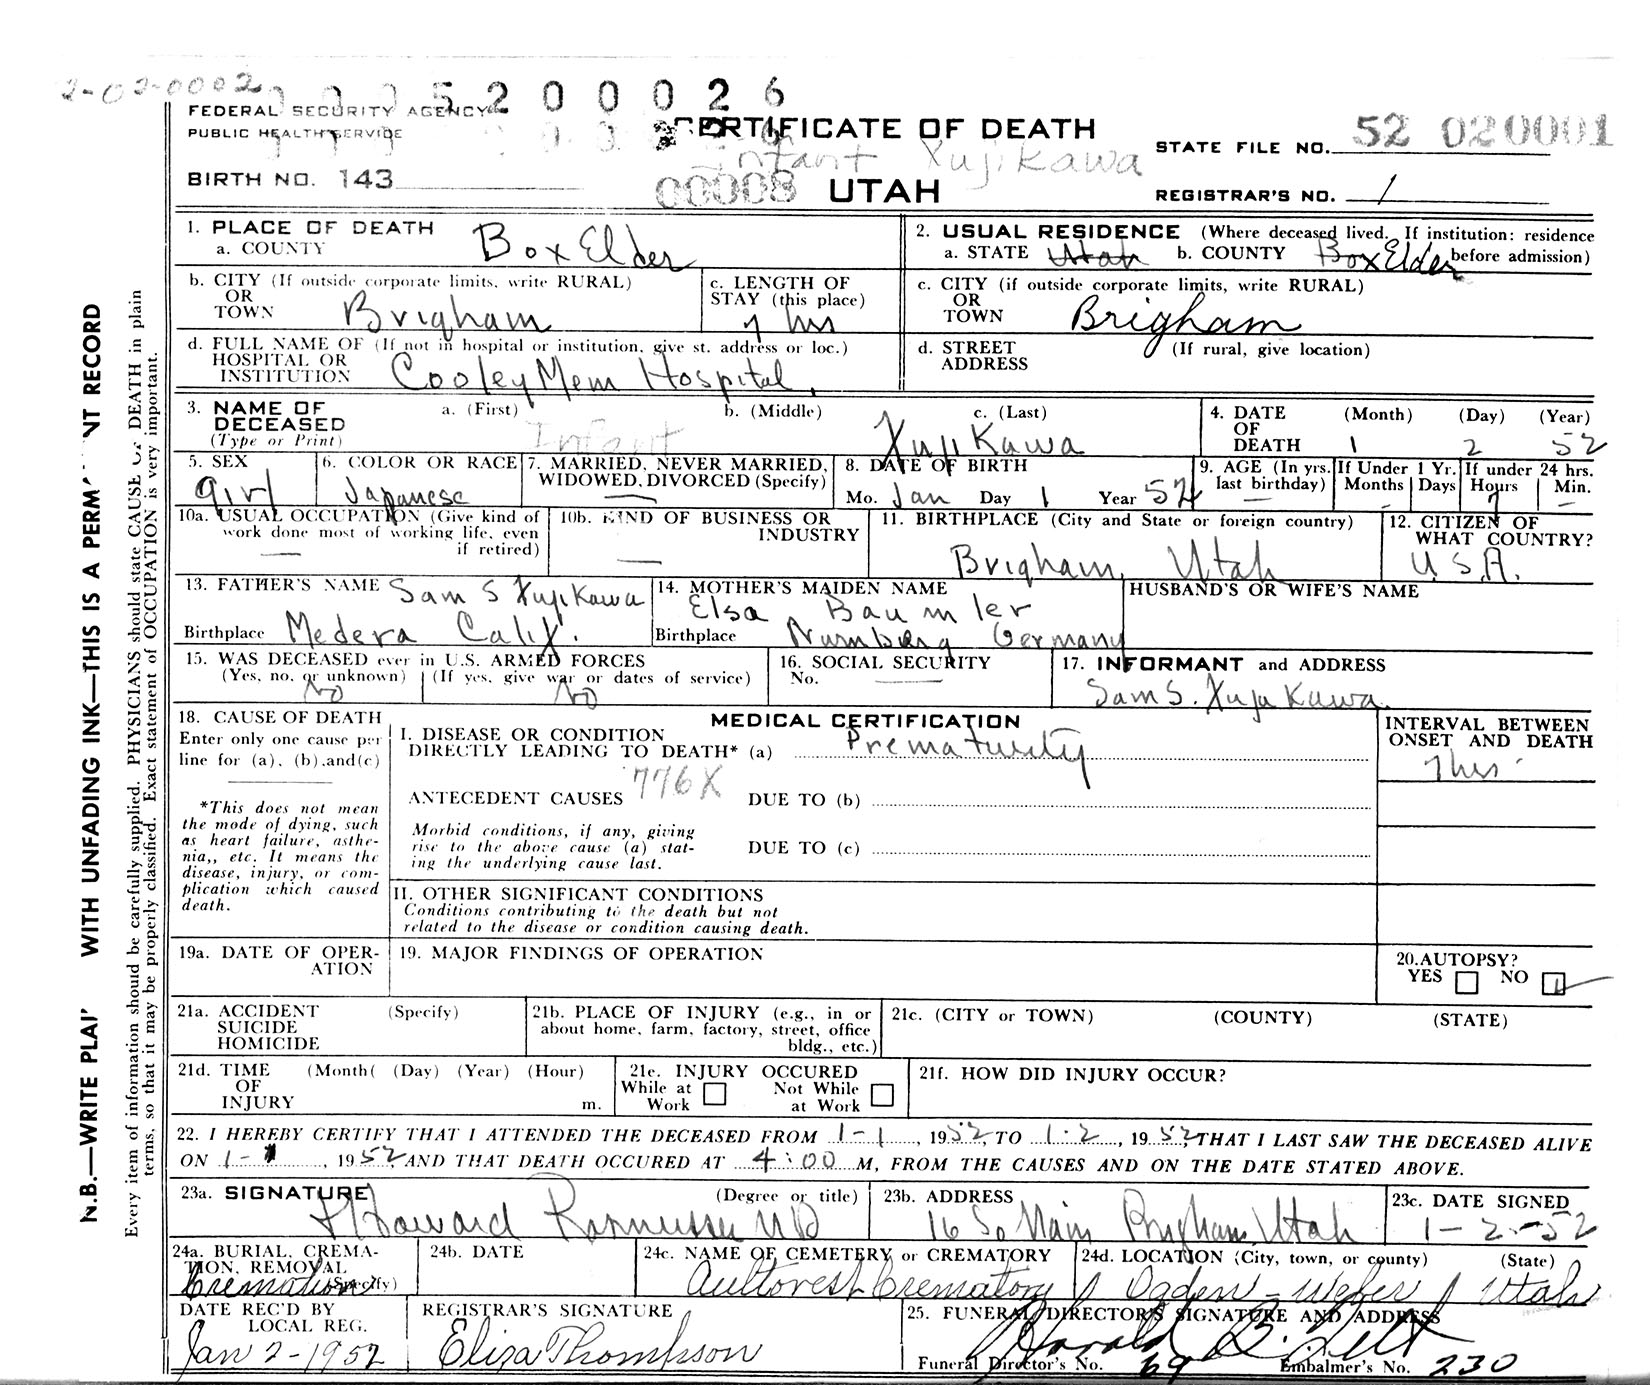 2-02-0002
5200026
FEDERAL SECURITY AGENCY
PUBLIC HEALTH SERVICE
CERTIFICATE OF DEATH
Infant Xujikawa
STATE FILE NO. 52 020001
BIRTH NO. 143
00008 UTAH
REGISTRAR'S NO. 1
1. PLACE OF DEATH
a. COUNTY Box Elder
2. USUAL RESIDENCE (Where deceased lived. If institution: residence before admission)
a. STATE Utah b. COUNTY Box Elder
b. CITY (If outside corporate limits, write RURAL)
OR
TOWN Brigham
c. LENGTH OF
STAY (this place)
7 hrs
c. CITY (if outside corporate limits, write RURAL)
OR
TOWN Brigham
d. FULL NAME OF (If not in hospital or institution, give st. address or loc.)
HOSPITAL OR
INSTITUTION Cooley Mem Hospital
d. STREET
ADDRESS
(If rural, give location)
3. NAME OF
DECEASED
(Type or Print)
a. (First) b. (Middle) c. (Last)
Infant Xuji Kawa
4. DATE
OF
DEATH
(Month) (Day) (Year)
1 2 52
5. SEX
girl
6. COLOR OR RACE
Japanese
7. MARRIED, NEVER MARRIED,
WIDOWED, DIVORCED (Specify)
8. DATE OF BIRTH
Mo. Jan Day 1 Year 52
9. AGE (In yrs.
last birthday)
If Under 1 Yr.
Months Days
If under 24 hrs.
Hours Min.
7
10a. USUAL OCCUPATION (Give kind of
work done most of working life, even
if retired)
10b. KIND OF BUSINESS OR
INDUSTRY
11. BIRTHPLACE (City and State or foreign country)
Brigham, Utah
12. CITIZEN OF
WHAT COUNTRY?
U.S.A.
13. FATHER'S NAME Sam S Xuji Kawa
Birthplace Medera Calif.
14. MOTHER'S MAIDEN NAME
Elsa Baumler
Birthplace Nurnberg Germany
HUSBAND'S OR WIFE'S NAME
15. WAS DECEASED ever in U.S. ARMED FORCES
(Yes, no, or unknown) (If yes, give war or dates of service)
No No
16. SOCIAL SECURITY
No.
17. INFORMANT and ADDRESS
Sam S. Xuji Kawa.
18. CAUSE OF DEATH
Enter only one cause per
line for (a), (b), and (c)
*This does not mean
the mode of dying, such
as heart failure, asthe-
nia,, etc. It means the
disease, injury, or com-
plication which caused
death.
MEDICAL CERTIFICATION
I. DISEASE OR CONDITION
DIRECTLY LEADING TO DEATH* (a) Prematurity
776X
ANTECEDENT CAUSES DUE TO (b)
Morbid conditions, if any, giving
rise to the above cause (a) stat-
ing the underlying cause last.
DUE TO (c)
II. OTHER SIGNIFICANT CONDITIONS
Conditions contributing to the death but not
related to the disease or condition causing death.
INTERVAL BETWEEN
ONSET AND DEATH
7 hrs
19a. DATE OF OPER-
ATION
19. MAJOR FINDINGS OF OPERATION
20. AUTOPSY?
YES NO
21a. ACCIDENT
SUICIDE
HOMICIDE
(Specify)
21b. PLACE OF INJURY (e.g., in or
about home, farm, factory, street, office
bldg., etc.)
21c. (CITY or TOWN) (COUNTY) (STATE)
21d. TIME
OF
INJURY
(Month( (Day) (Year) (Hour)
m.
21e. INJURY OCCURED
While at
Work
Not While
at Work
21f. HOW DID INJURY OCCUR?
22. I HEREBY CERTIFY THAT I ATTENDED THE DECEASED FROM 1-1, 1952, TO 1-2, 1952, THAT I LAST SAW THE DECEASED ALIVE
ON 1-1, 1952, AND THAT DEATH OCCURED AT 4:00 M, FROM THE CAUSES AND ON THE DATE STATED ABOVE.
23a. SIGNATURE (Degree or title)
Howard Rasmussen MD
23b. ADDRESS
16 So Main Brigham, Utah
23c. DATE SIGNED
1-2-52
24a. BURIAL, CREMA-
TION, REMOVAL
(Specify)
Cremation
24b. DATE
24c. NAME OF CEMETERY or CREMATORY
Aultorest Crematory
24d. LOCATION (City, town, or county) (State)
Ogden - Weber / Utah
DATE REC'D BY
LOCAL REG.
Jan 2-1952
REGISTRAR'S SIGNATURE
Eliza Thompson
25. FUNERAL DIRECTOR'S SIGNATURE AND ADDRESS
Harold B. Felt
Funeral Director's No. 69 Embalmer's No. 230
N.B.—WRITE PLAI WITH UNFADING INK—THIS IS A PERM NT RECORD
Every item of information should be carefully supplied. PHYSICIANS should state CAUSE OF DEATH in plain
terms, so that it may be properly classified. Exact statement of OCCUPATION is very important.